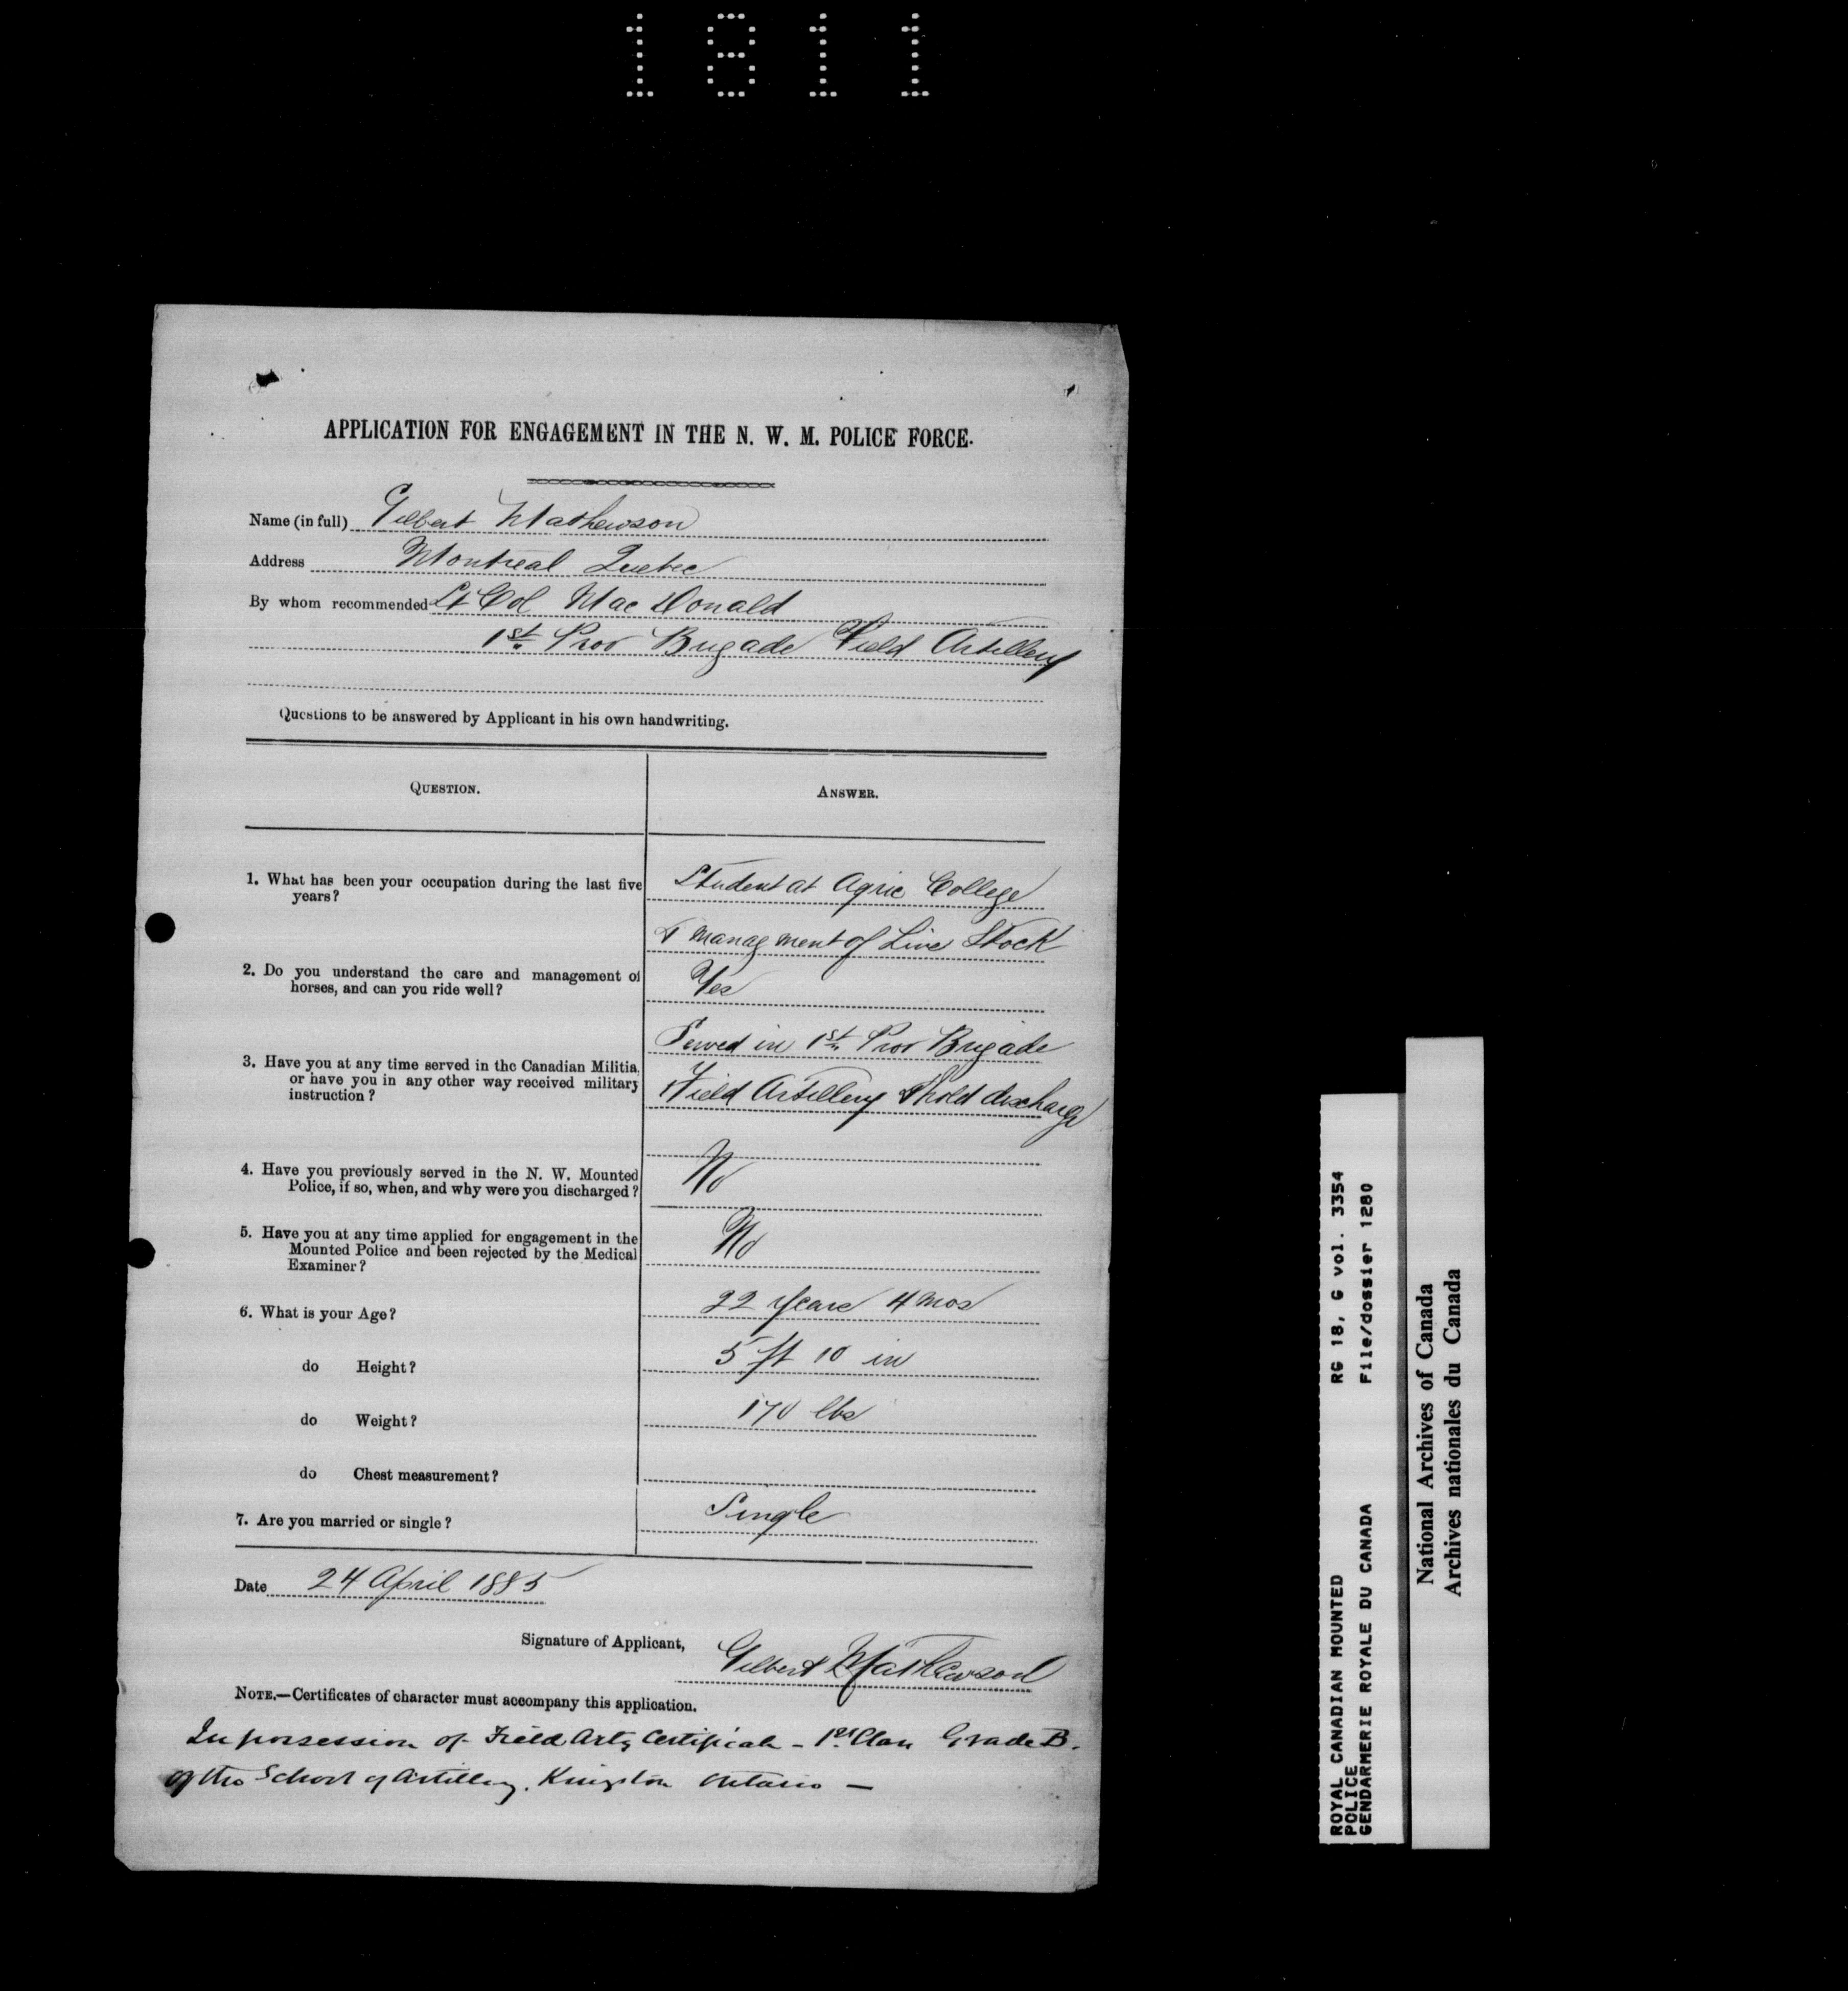 1811
APPLICATION FOR ENGAGEMENT IN THE N. W. M. POLICE FORCE.
Name (in full) Gilbert Mathewson
Address Montreal Quebec
By whom recommended Lt Col MacDonald
1st Prov Brigade Field Artillery
Questions to be answered by Applicant in his own handwriting.
QUESTION. ANSWER.
1. What has been your occupation during the last five Student at Agric College
years?
& managment of Live Stock
2. Do you understand the care and management of Yes
horses, and can you ride well?
Served in 1st Prov Brigade
3. Have you at any time served in the Canadian Militia,
or have you in any other way received military Field Artillery & hold discharge
instruction?
4. Have you previously served in the N. W. Mounted No
Police, if so, when, and why were you discharged?
5. Have you at any time applied for engagement in the No
Mounted Police and been rejected by the Medical
Examiner?
6. What is your Age? 22 years 4 mos
do Height? 5 ft 10 in
do Weight? 170 lbs
do Chest measurement?
7. Are you married or single? Single
Date 24 April 1885
Signature of Applicant, Gilbert Mathewson
NOTE.—Certificates of character must accompany this application.
In possession of Field Arty Certificate - 1st Class Grade B.
of the School of Artillery, Kingston Ontario —
ROYAL CANADIAN MOUNTED RG 18, G vol. 3354
POLICE
GENDARMERIE ROYALE DU CANADA File/dossier 1280
National Archives of Canada
Archives nationales du Canada